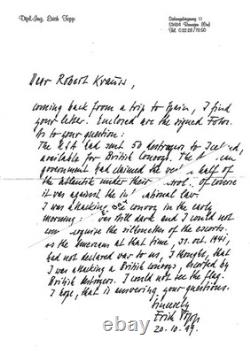 Dipl.-Ing. Erich Topp
Dear Robert Krauss,
coming back from a trip to Spain, I find
your letter. Enclosed are the signed Fotos.
As to your question:
The USA had sent 50 destroyers to
available for British Convoys. The
government had claimed the half
of the Atlantic under their control. Of course
it was against the national law.
I was attacking convoy in the early
morning: was still dark and I could not
recognize the silhouettes of the escorts.
As the American at that time, 31. Oct. 1941,
had not declared war to us, I thought, that
I was attacking a British Convoy, escorted by
British destroyers. I could not see the flag.
I hope, that is answering your questions.
Sincerely
Erich Topp
20.10.
ebay